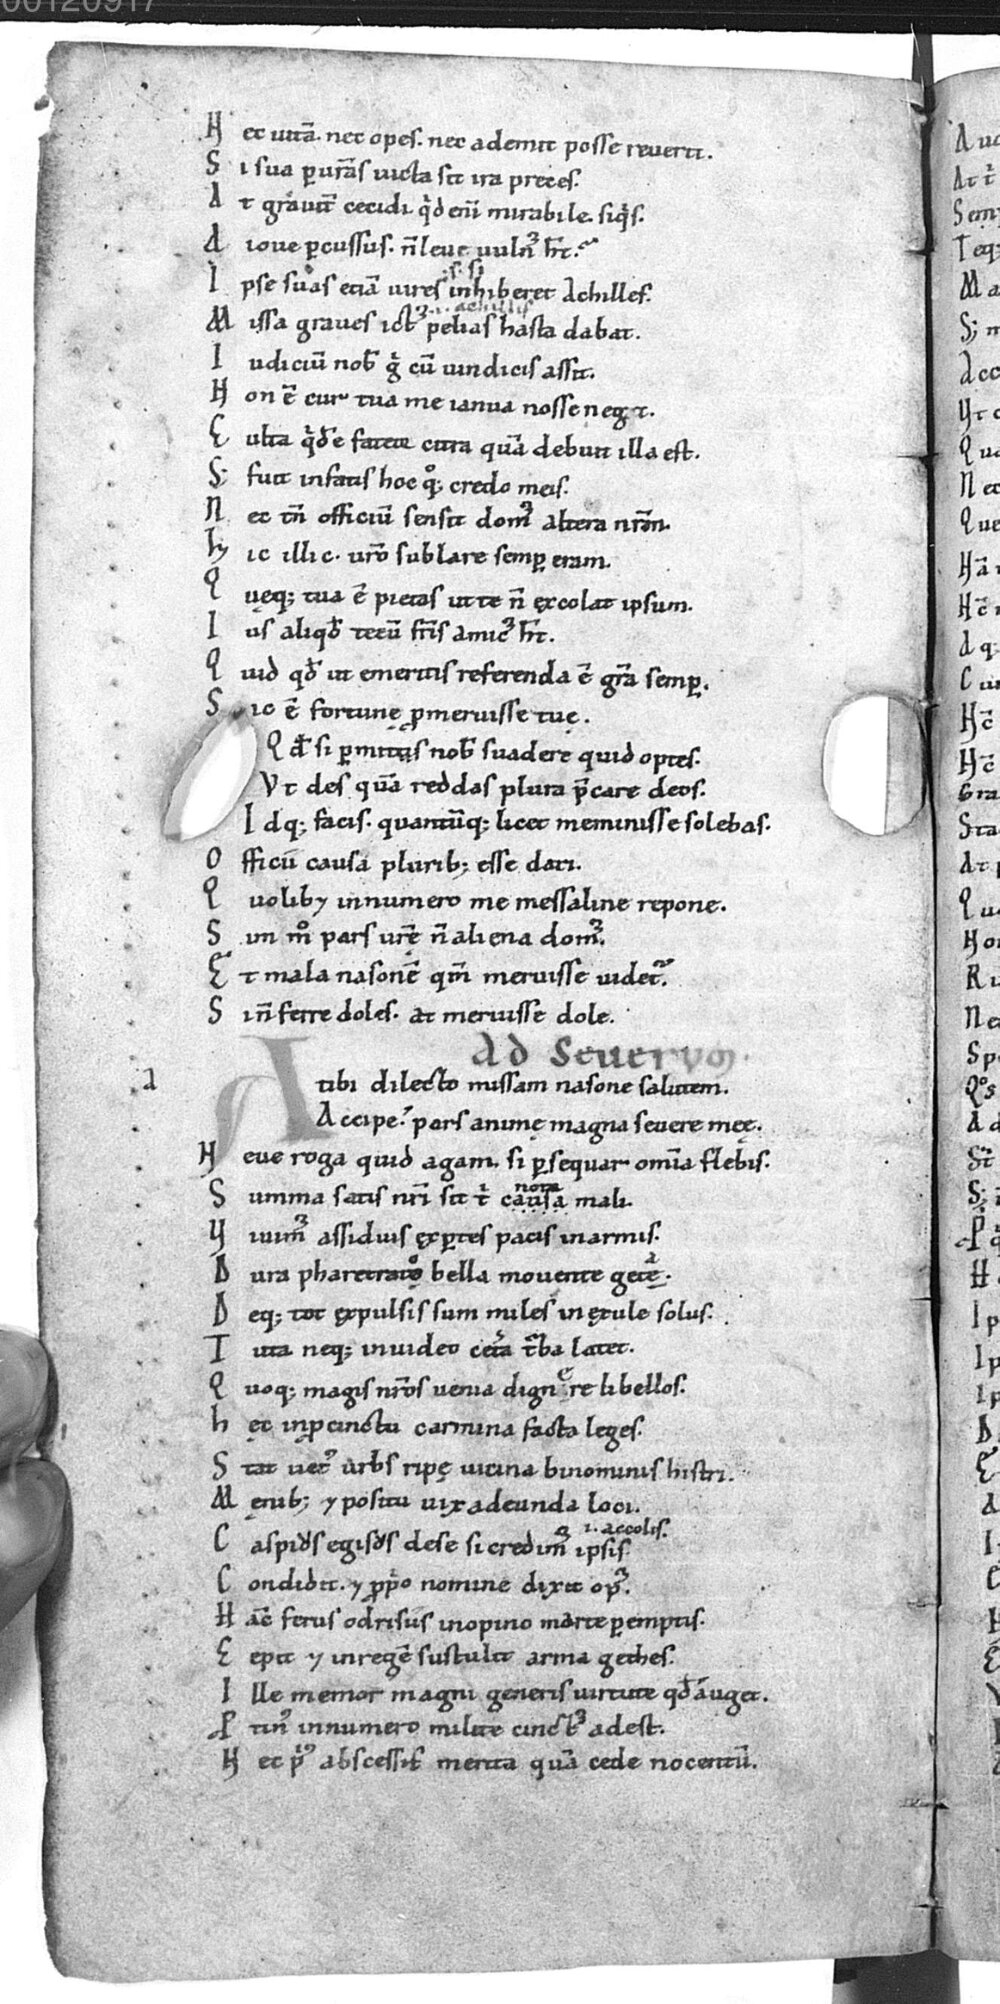 00120917
Nec uitā. nec opes. nec ademit posse reuerti.
Si sua p urās uicta sit ira preces.
At grauit̄ cecidi. qd enī mirabile. siqs.
A ioue pcussus. n̄ leue uuln᷒ h̄t.
Ipse suas etiā uires inhiberet Achilles.
Missa graues ict᷒ pelias hasta dabat.
i. achillis
Iudiciū nob̄ g cū uindicis assit.
Non ē cur tua me ianua nosse neget.
Culta qde fateor citra quā debuit illa est.
S; fuit infatis hoc qoq; credo meis.
Nec tn̄ officiū sensit dom᷒ altera nr̄m.
hic illic. uro sub lare semp eram.
Queq; tua ē pietas ut te n̄ excolat ipsum.
Ius aliqd tecū fr̄is amic᷒ h̄t.
Quid qd ut emeritis referenda ē gr̄a semp.
Sic ē fortunę pmeruisse tuę.
Qd si pmittas nob̄ suadere quid optes.
Vt des quā reddas plura p̄care deos.
Idq; facis. quantūq; licet meminisse solebas.
Officii causa plurib; esse dati.
Quolib; innumero me messaline repone.
Sim m° pars urę̄ n̄ aliena dom᷒.
Et mala nasonē qm̄ meruisse uidet᷒.
Sin̄ ferre doles. at meruisse dole.
Ad Seuerum.
a
A tibi dilecto missam nasone salutem.
Accipe. pars animę magna seuere meę.
Neue roga quid agam. si psequar omīa flebis.
nota
Summa satis nrī sit t causa mali.
Viuim᷒ assiduis expertes pacis inarmis.
Dura pharetrato bella mouente getę.
Deq; tot expulsis sum miles inexule solus.
Tuta neq; inuideo cetā tba latet.
Quoq; magis nr̄os uenia dignere libellos.
hęc inpcinctu carmina facta leges.
Stat uet᷒ urbs ripę uicina binominis histri.
Męnib; ⁊ positu uix adeunda loci.
i. accolis.
Caspids egisds dese si credim᷒ ipsis.
Condidit. ⁊ pp̄o nomine dixit op᷒.
Hāc ferus odrisus inopino marte pemptis.
Cepit ⁊ inregē sustulit arma gethes.
Ille memor magni generis uirtute qd auget.
Ptin᷒ innumero milite cinct᷒ adest.
Nec p᷒ abscessit merita quā cede nocentū.